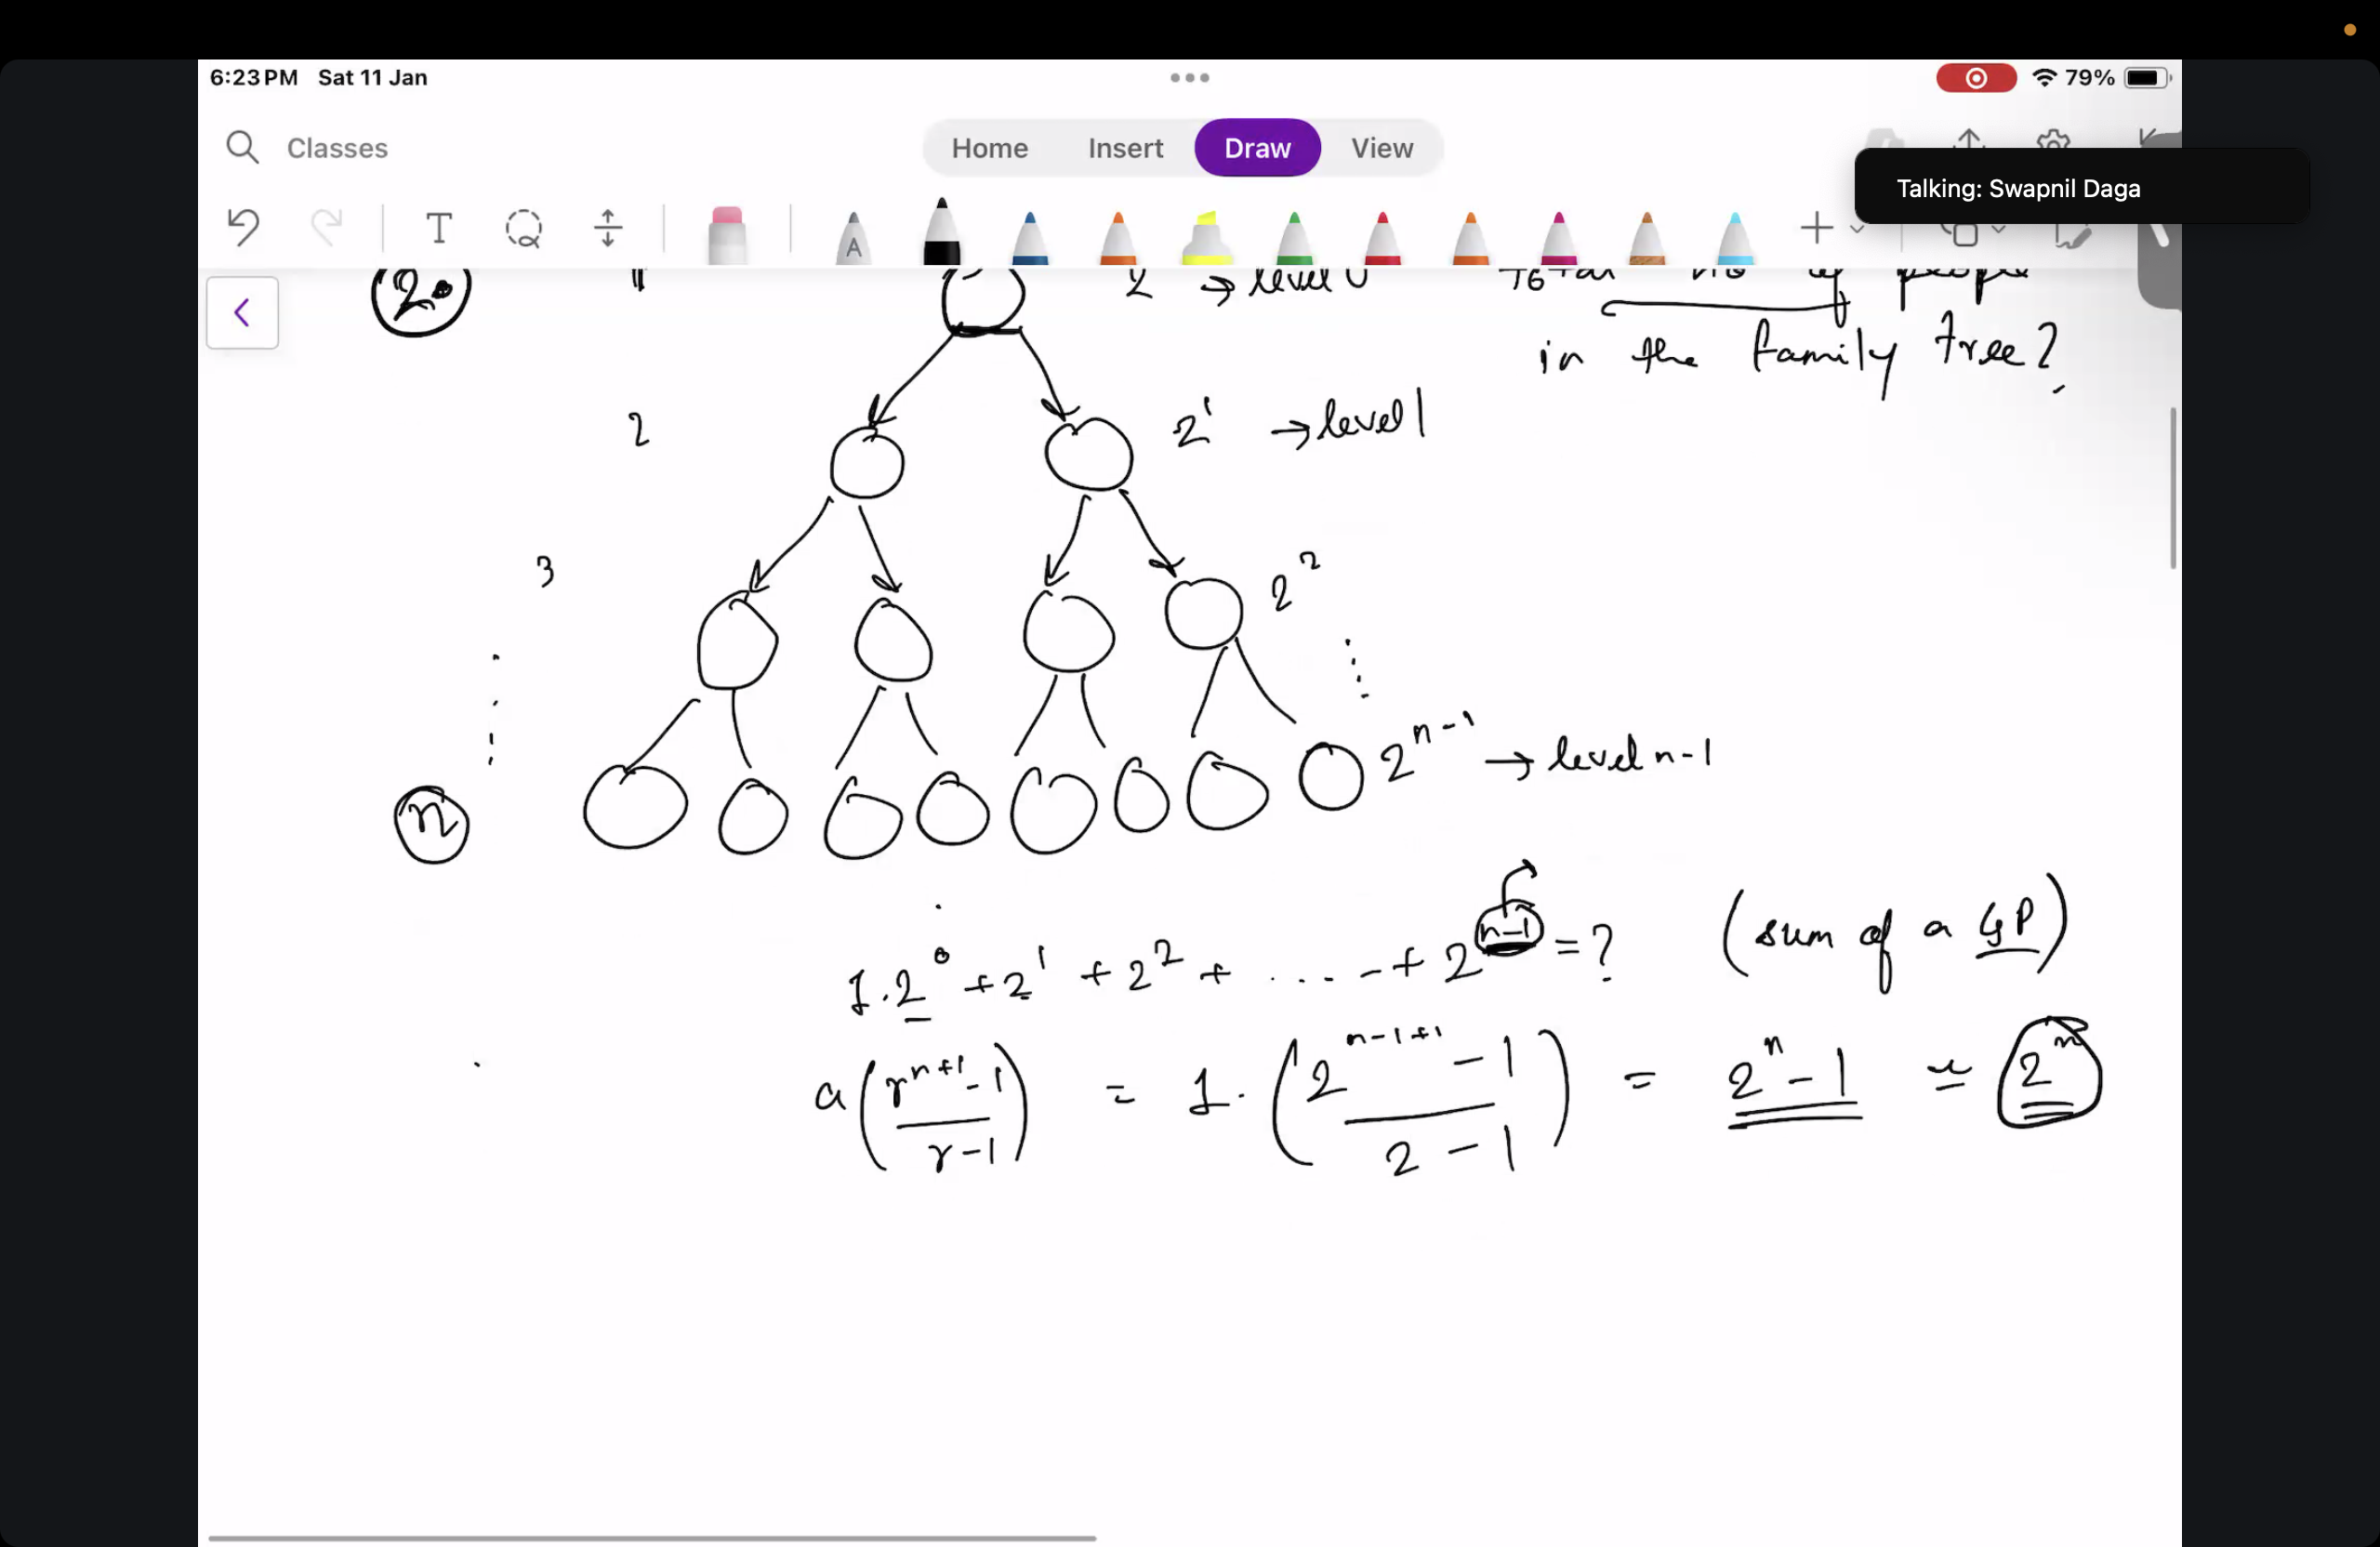 6:23 PM Sat 11 Jan 79%
Classes Home Insert Draw View
Talking: Swapnil Daga
T A
2. 1 2 → level 0 Total no of people
in the family tree?
2 2¹ → level 1
3 2²
n 2ⁿ⁻¹ → level n-1
1.2⁰ + 2¹ + 2² + .... + 2ⁿ⁻¹ = ? (sum of a GP)
a(rⁿ⁺¹ - 1 / r - 1) = 1.(2ⁿ⁻¹⁺¹ - 1 / 2 - 1) = 2ⁿ - 1 ≃ 2ⁿ